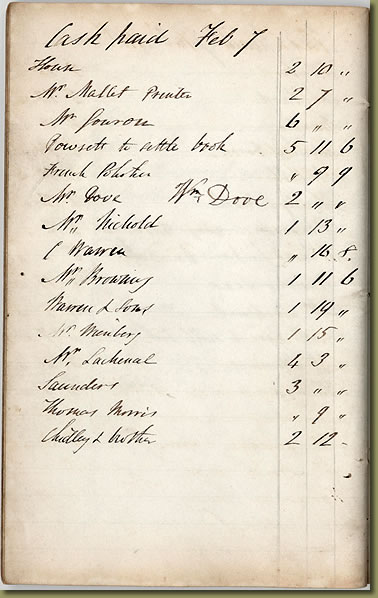 Cash paid Feb 7
House 2 10 "
Mr. Mallet Printer 2 7 "
Mr 6 " "
to settle book 5 11 6
French " 9 9
Mr. Dove Wm Dove 2 " "
Mr. Nickold 1 13 "
C Warren " 16 8.
Mr. Browning 1 11 6
Warren & Sons 1 19 "
Mr. 1 15 "
Mr. Lachenal 4 3 "
Saunders 3 " "
Thomas Morris " 9 "
Chidley & brother 2 12 -